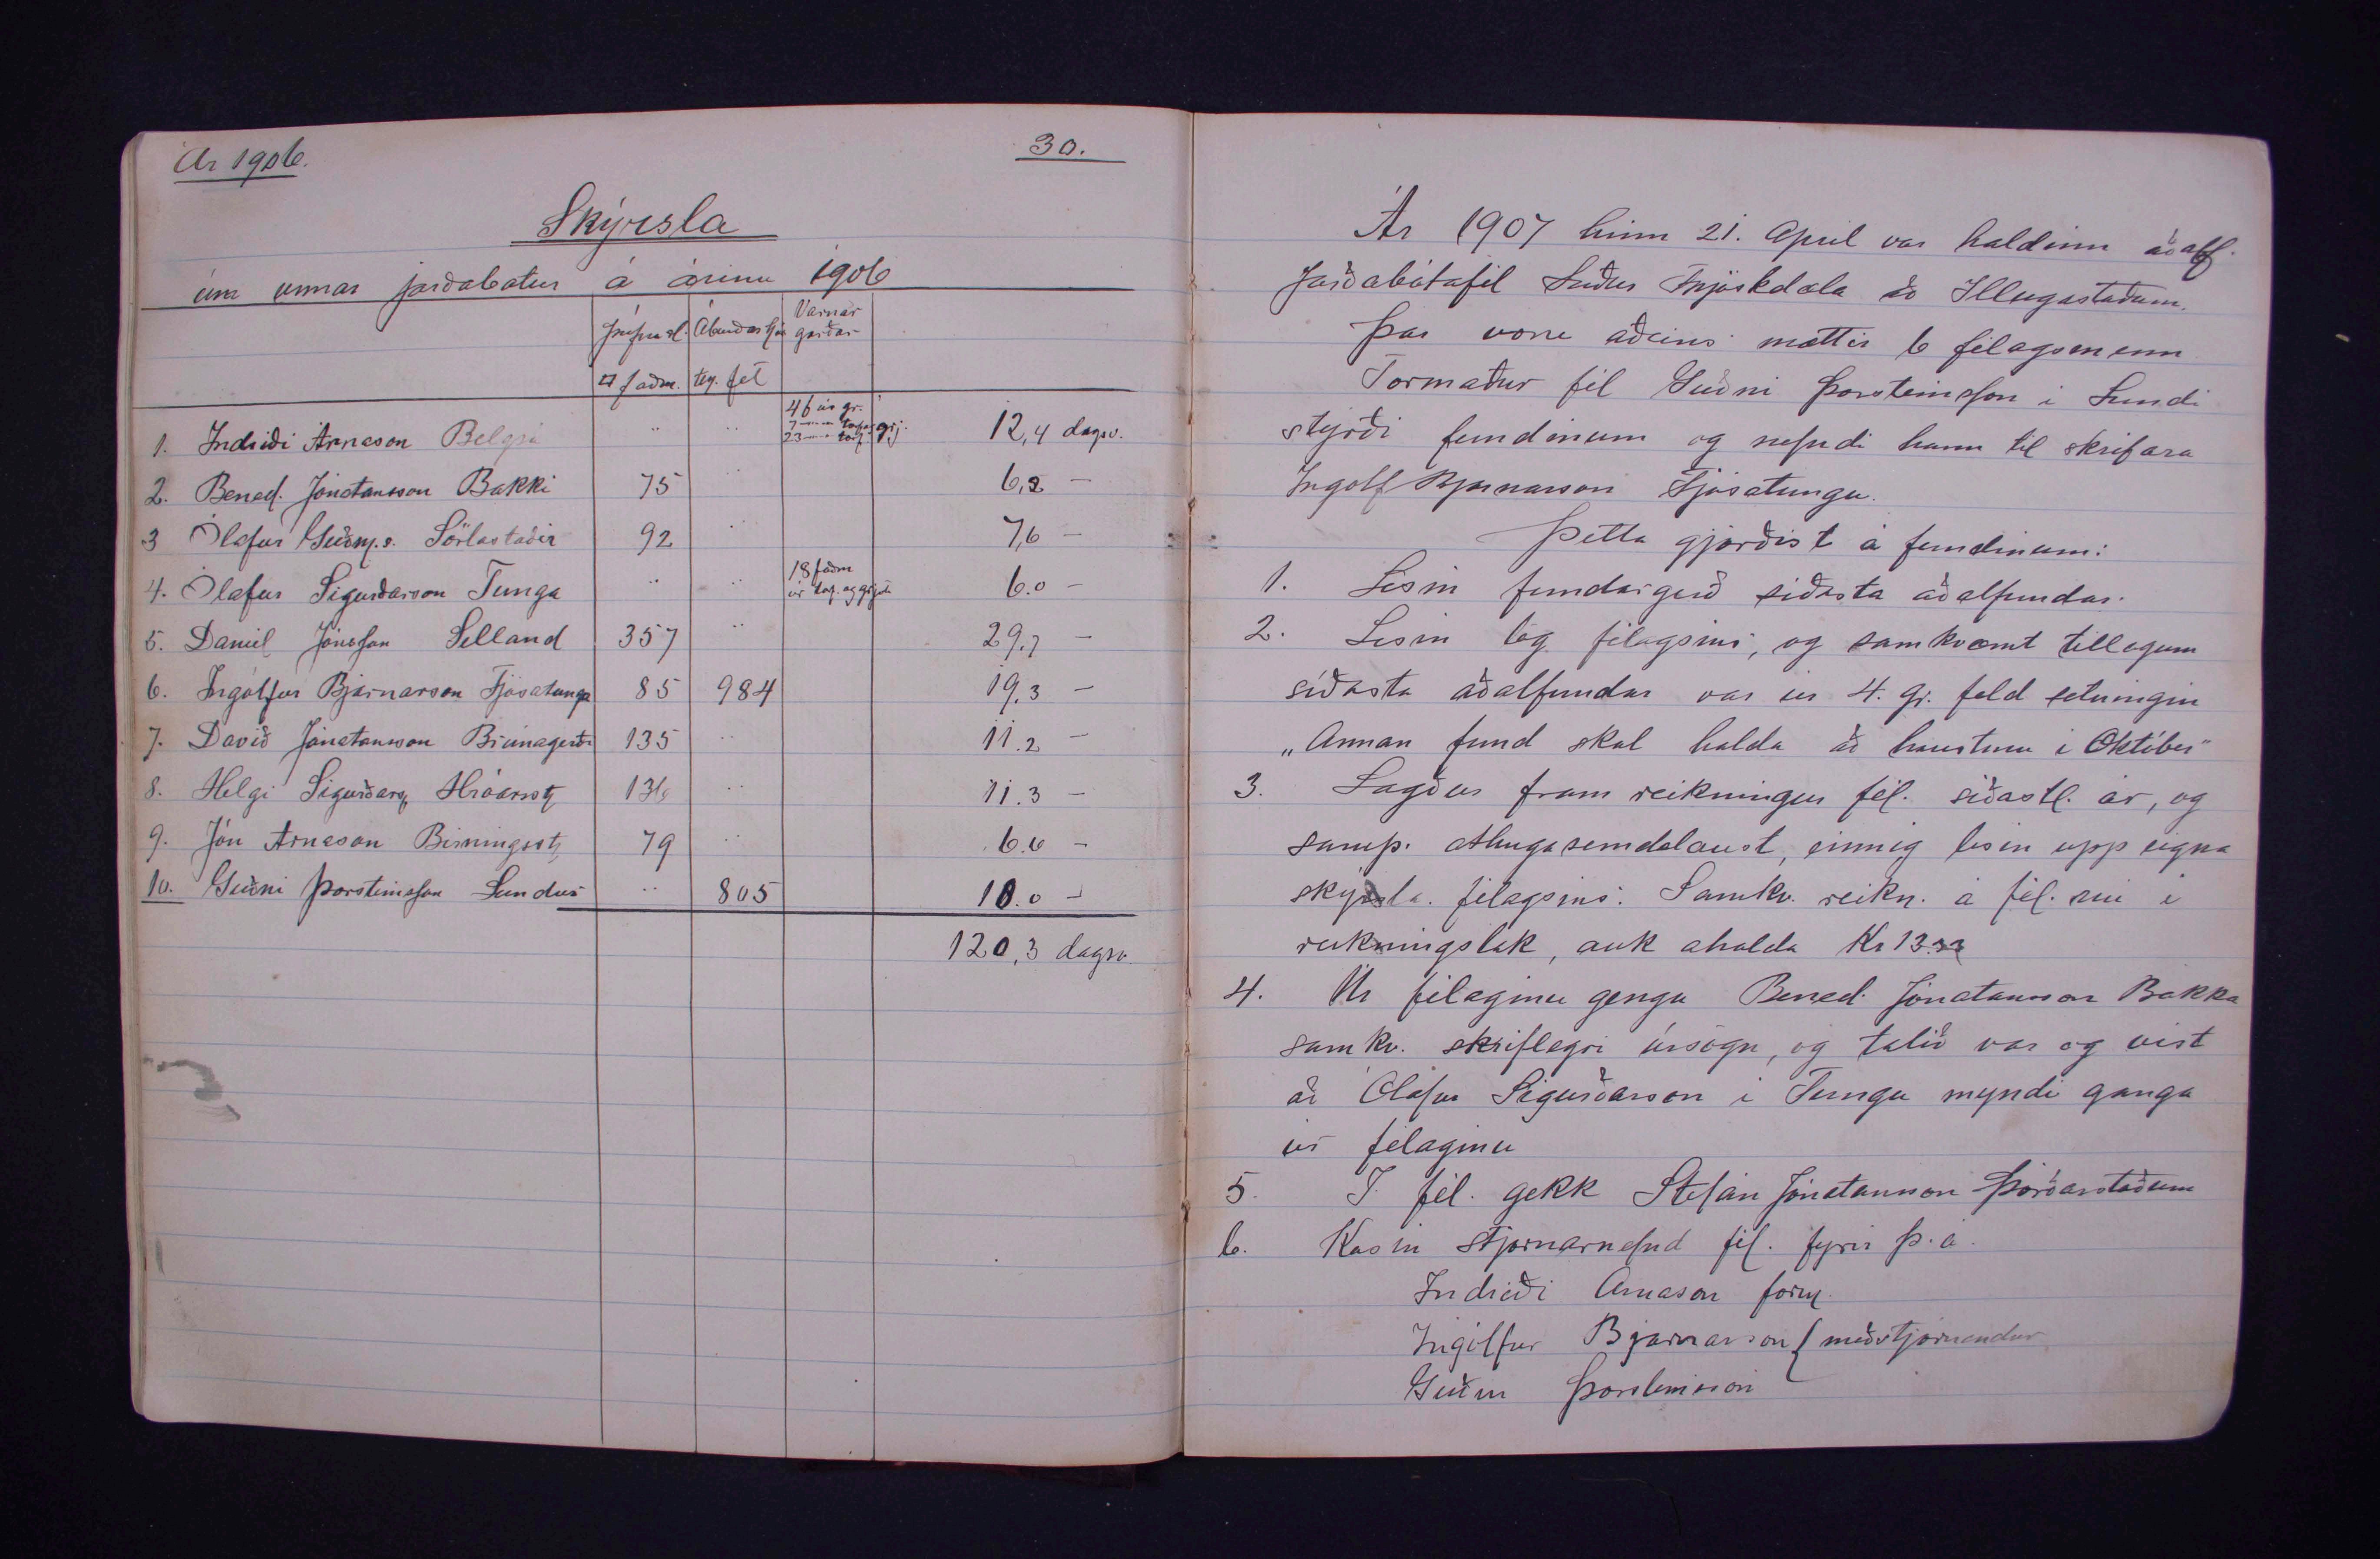 Ár 1906.
30.
Skýrsla
um unnar jarðabætur á árinu 1906
Þúfnasl. Áburðarhús Varnar
garðar
□ faðm. ten. fet
46 úr gr.
1. Indriði Árnason Belgsá " " 12,4 dagsv.
2. Bened. Jónatansson Bakki 75 " 6,2 —
3 Ólafur Guðm.s. Sörlastaðir 92 " 7,6 —
18 faðm
4. Ólafur Sigurðarson Tunga " " úr torf og grjóti 6.0 —
5. Daniel Jónsson Selland 357 " 29.7 —
6. Ingólfur Bjarnarson Fjósatunga 85 984 19.3 —
7. Davíð Jónatansson Brúnagerði 135 " 11.2 —
8. Helgi Sigurðars. Hróarsst. 136 " 11.3 —
9. Jón Árnason Birningsst. 79 " 6.6 —
10. Guðni Þorsteinsson Lundur " 805 10.0 —
120,3 dagsv.
Ár 1907 hinn 21. Apríl var haldinn aðalf.
Jarðabótafél Suður Fnjóskdæla að Illugastaðum.
Þar voru aðeins mættir 6 félagsmenn
Formaður fél Guðni Þorsteinsson i Lundi
styrði fundinum og nefndi hann til skrifara
Ingolf Bjarnarson Fjósatungu.
Þetta gjörðist á fundinum:
1. Lesin fundargerð síðasta aðalfundar.
2. Lesin lög félagsins, og samkvæmt tillögum
síðasta aðalfundar var úr 4. gr. feld setningin
„Annan fund skal halda að haustinu i Október"
3. Lagður fram reikningur fél. síðastl. ár, og
samþ. athugasemdalaust, einnig lesin upp eigna
skýrsla félagsins. Samkv. reikn. á fél. nú i
reikningslok, auk áhalda Kr 13.33
4. Úr félaginu gengu Bened. Jónatansson Bakka
samkv. skriflegri úrsögn, og talið var og vist
að Ólafur Sigurðarson i Tungu myndi ganga
úr félaginu
5. I fél. gekk Stefán Jónatansson Þórðarstaðum
6. Kosin stjórnarnefnd fél. fyrir þ.á.
Indriði Árnason form.
Ingólfur Bjarnarson { meðstjórnendur
Guðni Þorsteinsson